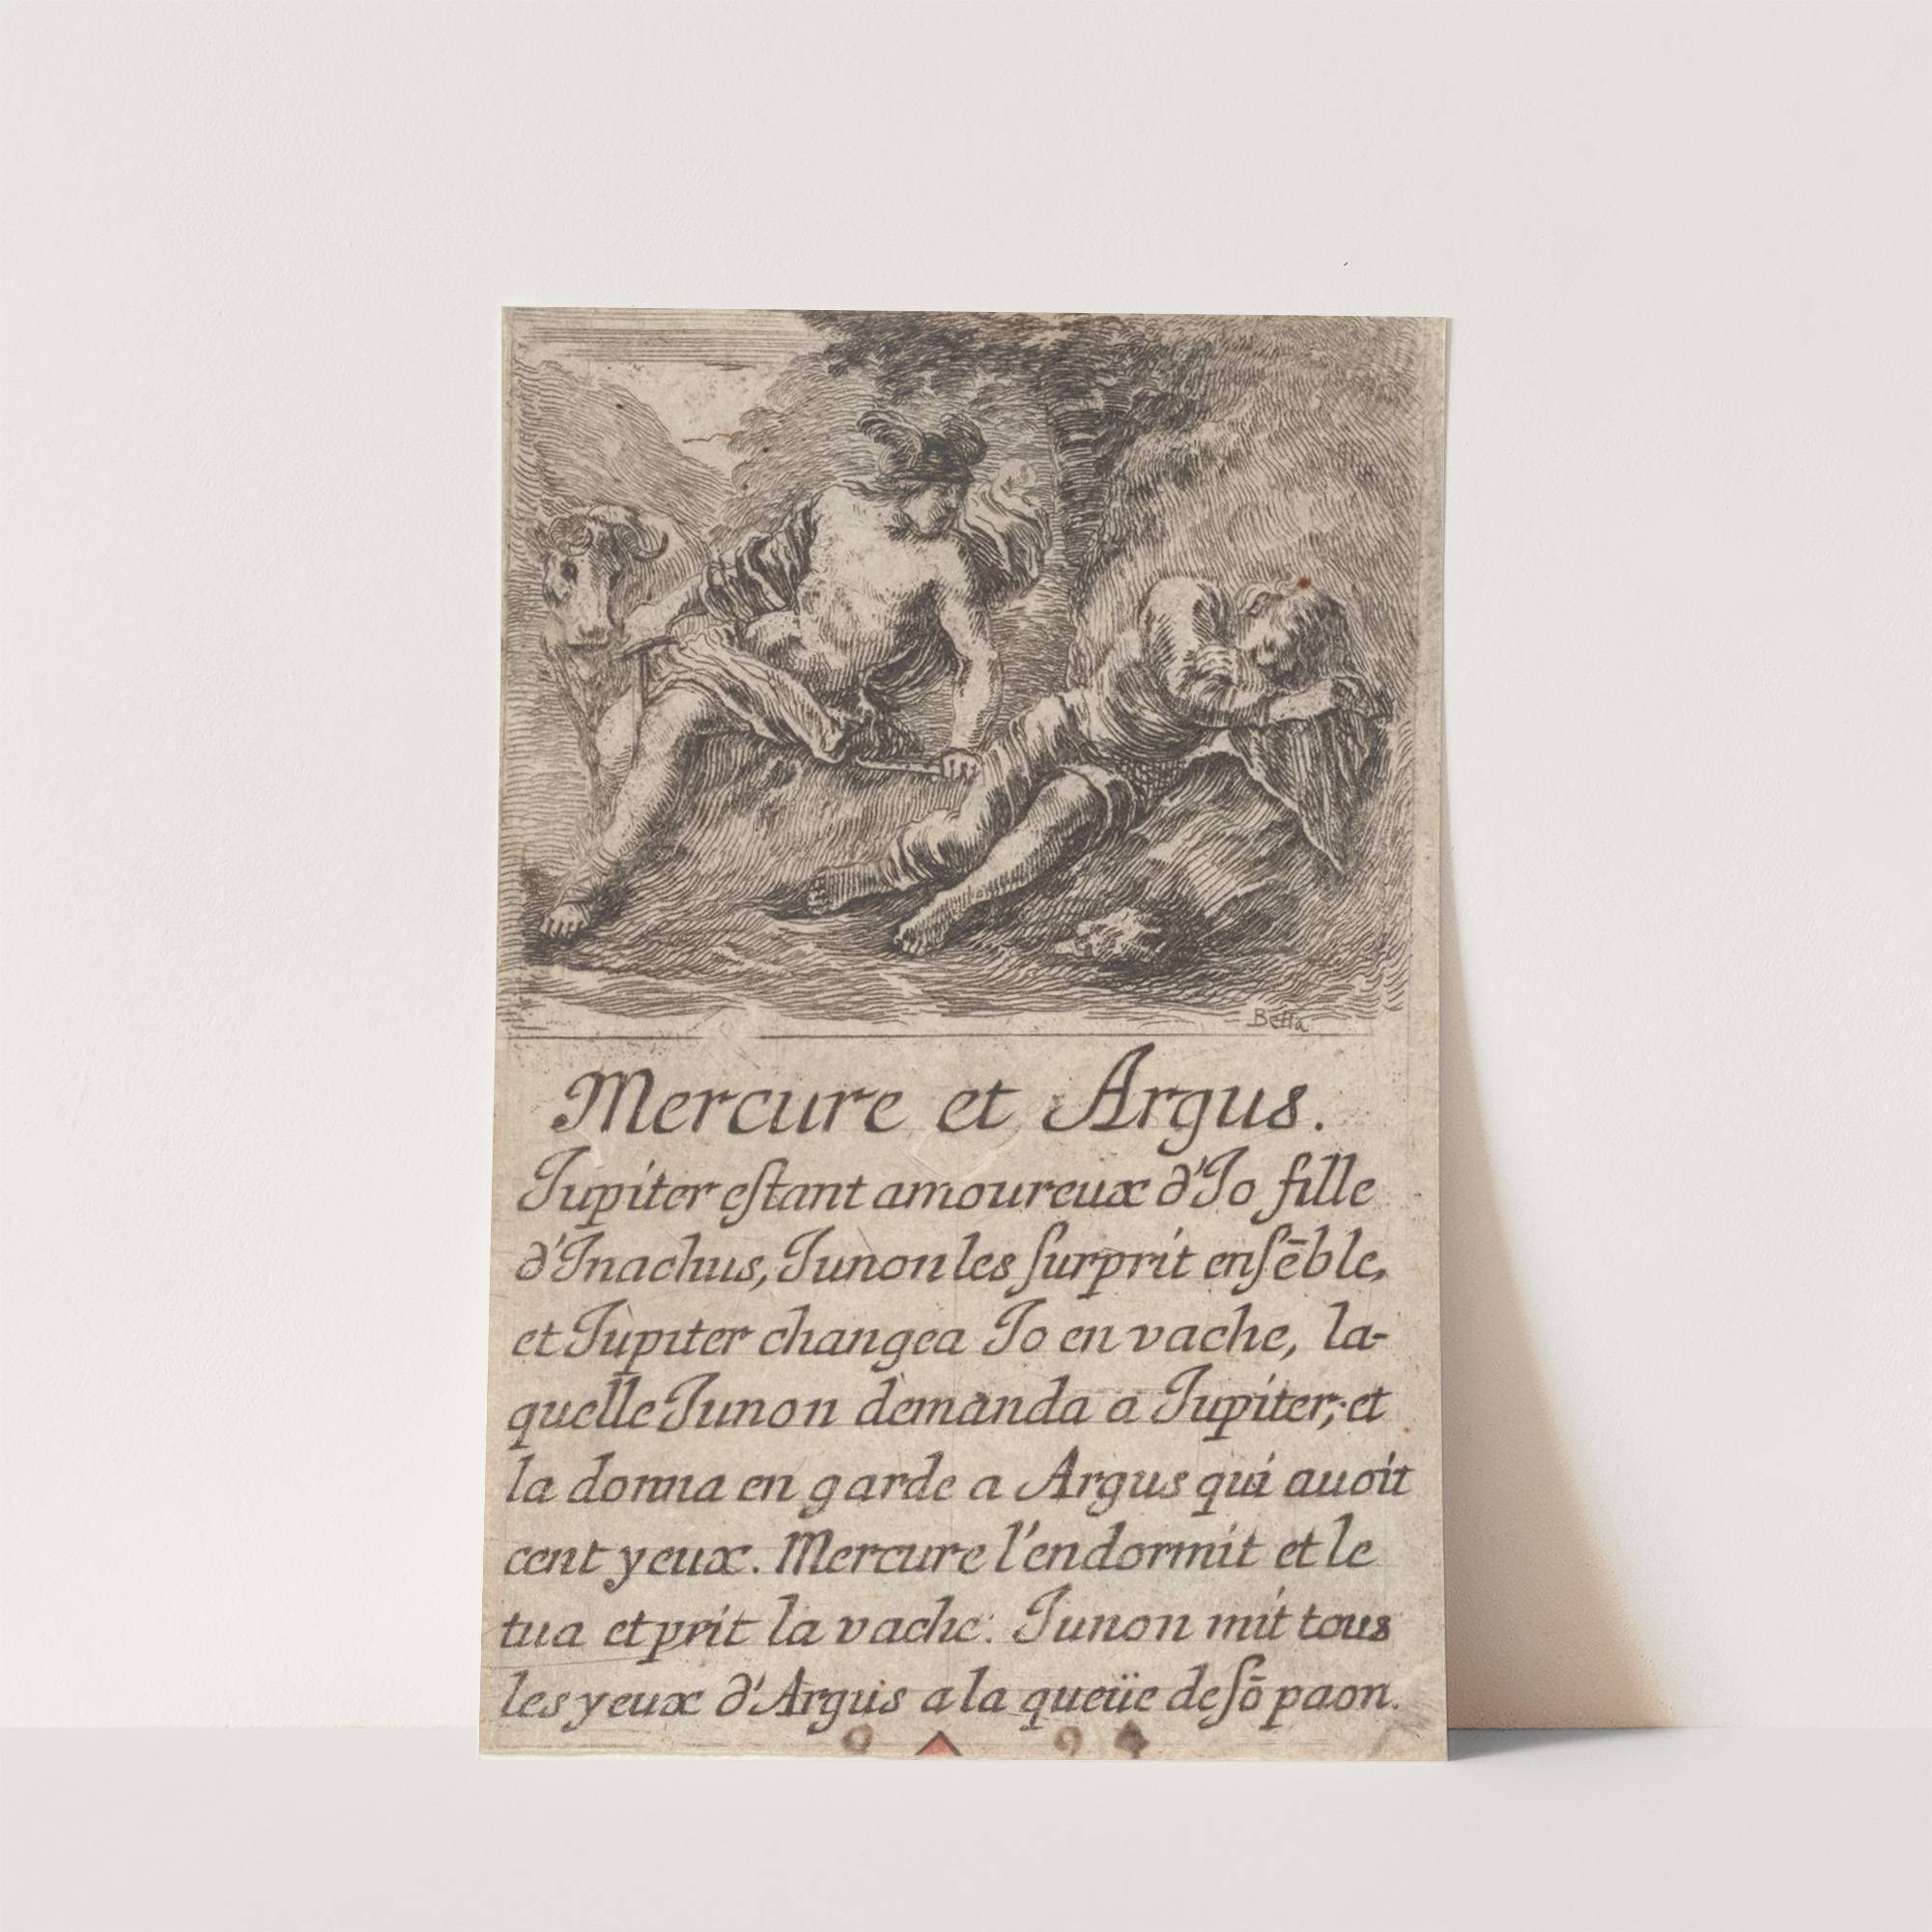 Bella
Mercure et Argus.
Jupiter eſtant amoureux d'Jo fille
d'Jnachus, Junon les ſurprit enſēble,
et Jupiter changea Jo en vache, la-
quelle Junon demanda a Jupiter; et
la donna en garde a Argus qui auoit
cent yeux. Mercure l'endormit et le
tua et prit la vache. Junon mit tous
les yeux d'Argus a la queüe de ſō paon.